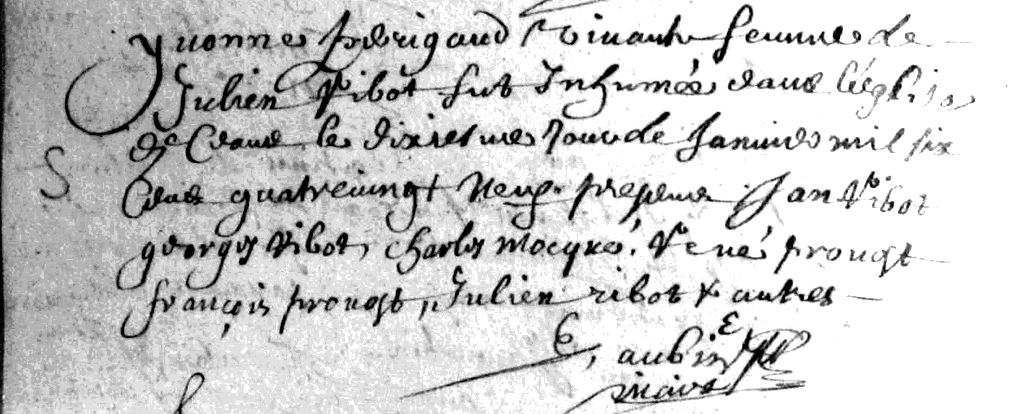 yvonne perigaud vivante femme de
Julien Ribot fut Inhumée dans l'églize
de ceans le dixiesme Jour de Janvier mil six
cens quatrevingt neuf presens Jan Ribot
georges Ribot, charles mocqué, René provost
françois provost, Julien ribot & autres
S
aubin